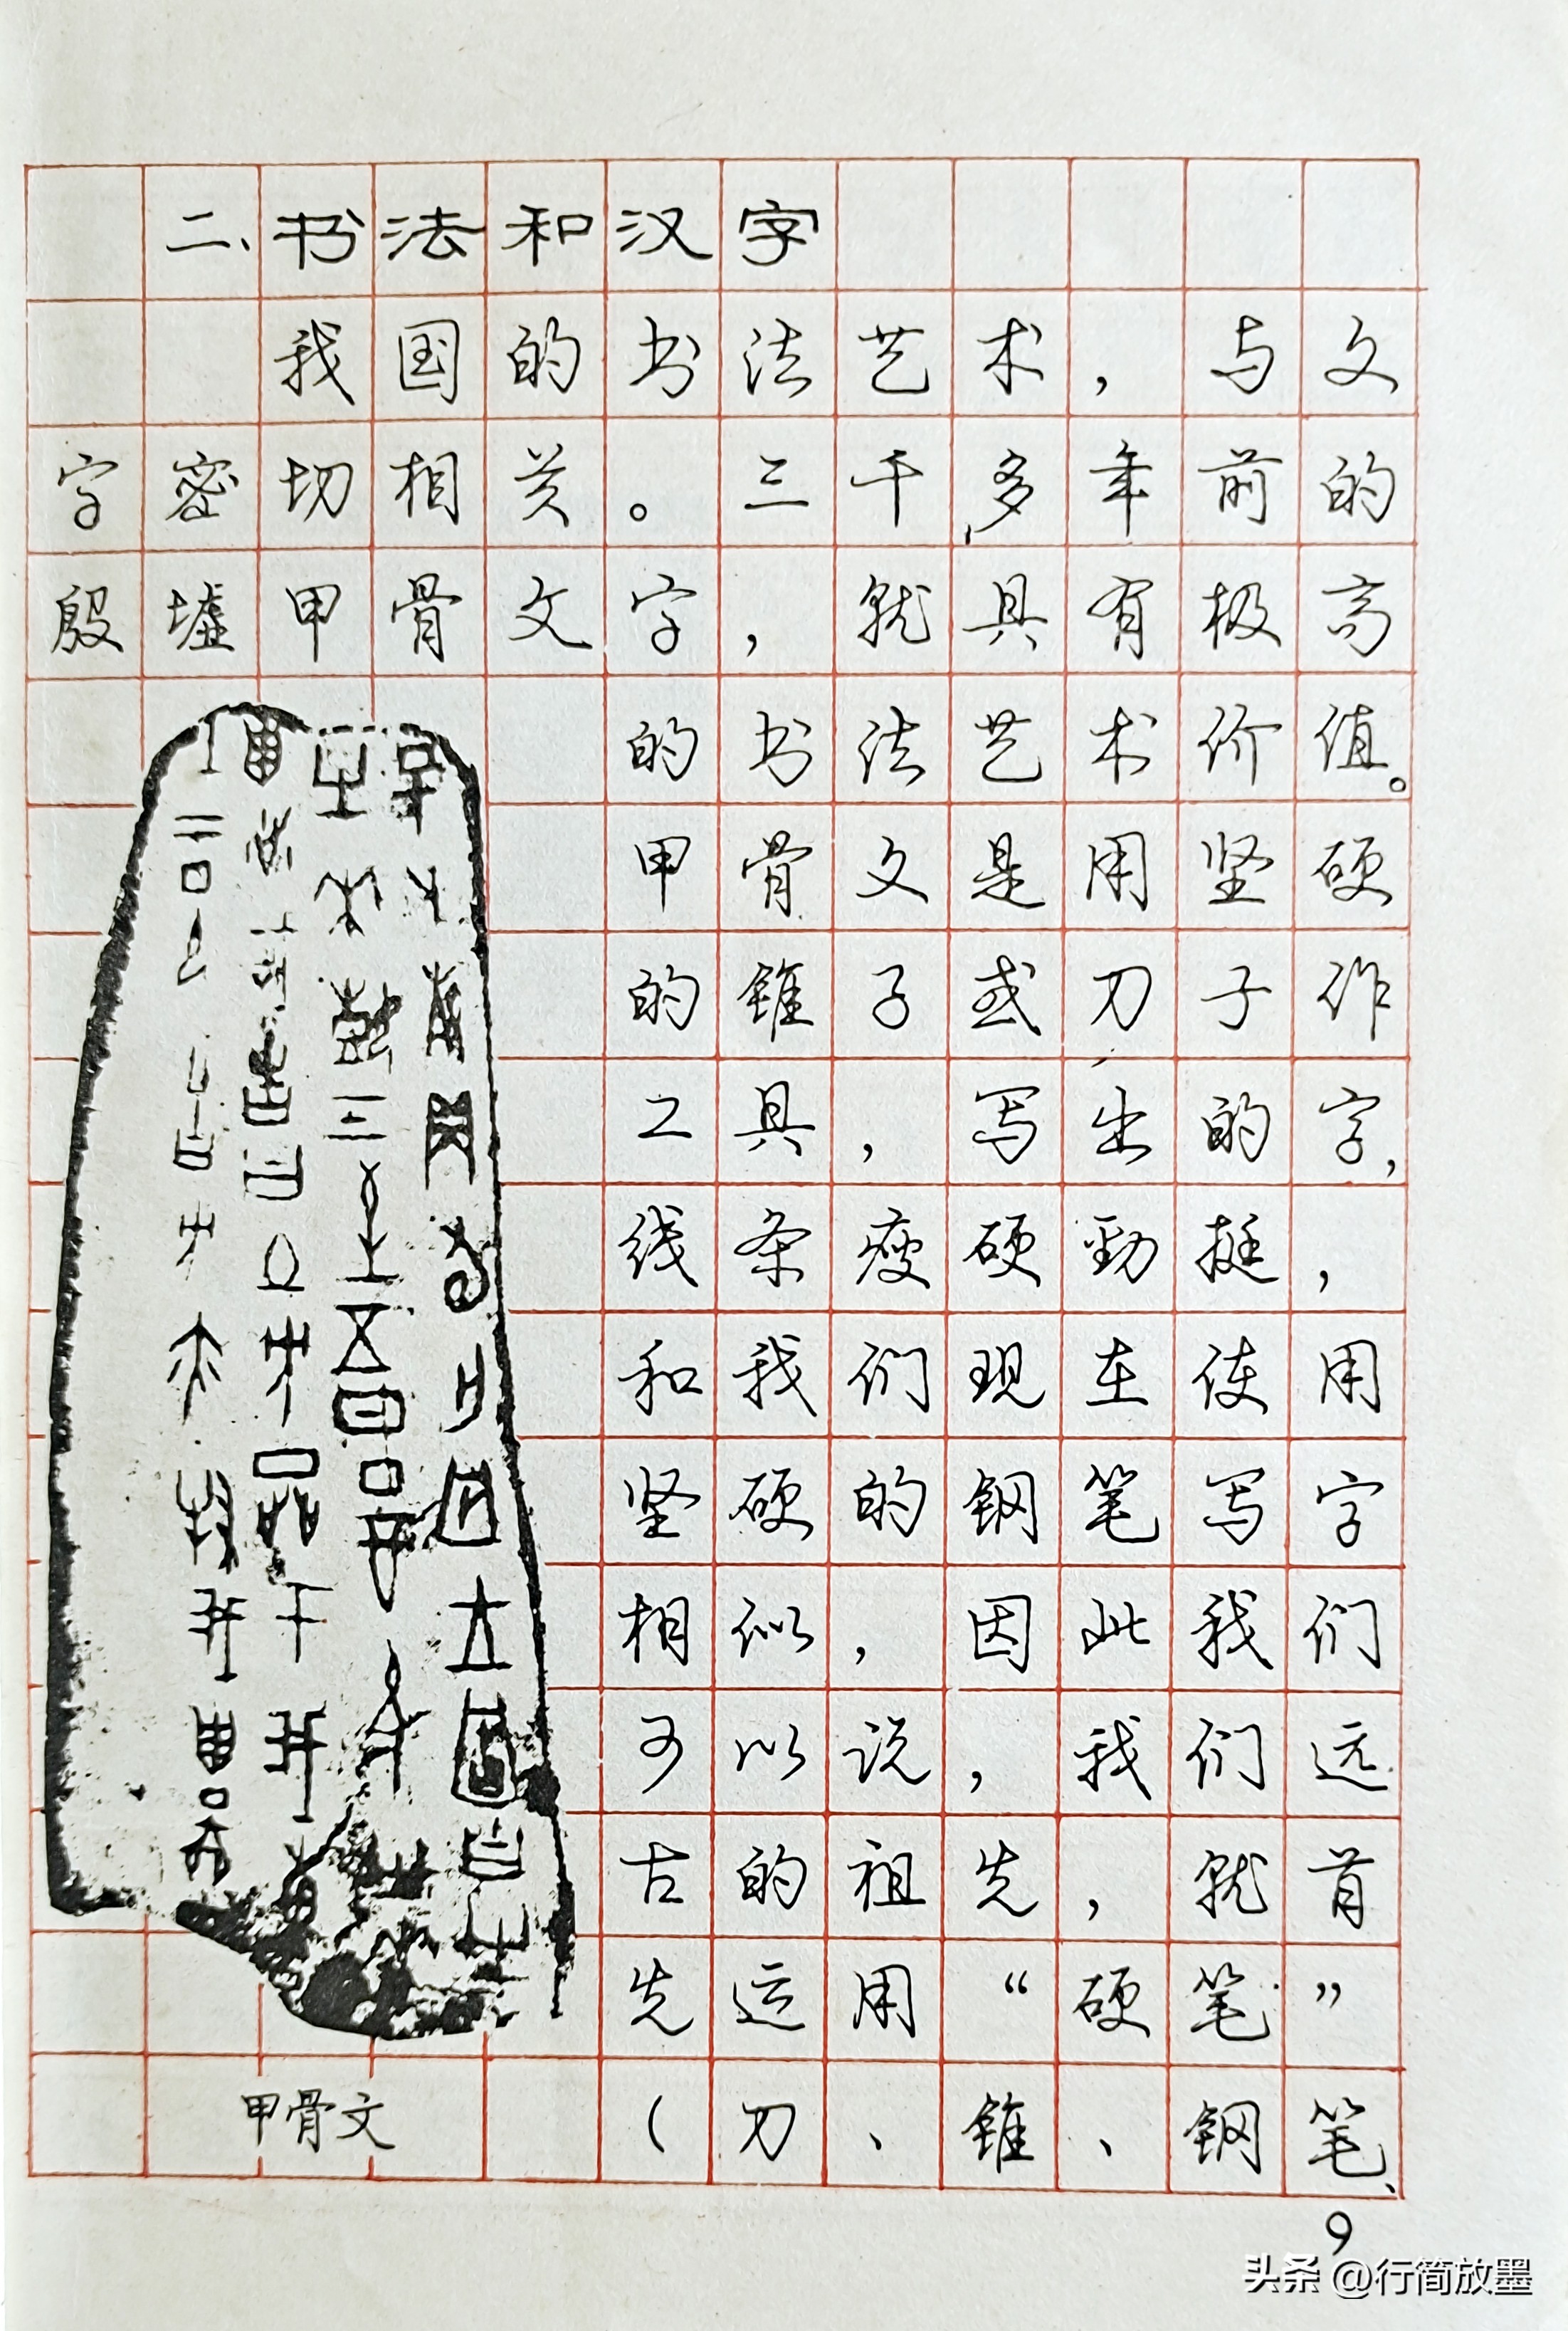 二、书法和汉字
我国的书法艺术，与文
字密切相关。三千多年前的
殷墟甲骨文字，就具有极高
的书法艺术价值。
甲骨文是用坚硬
的锥子或刀子作
工具，写出的字，
线条瘦硬劲挺，
和我们现在使用
坚硬的钢笔写字
相似，因此我们
可以说，我们远
古的祖先，就首
先运用“硬笔”
（刀、锥、钢笔、
甲骨文
9
头条 @行简放墨